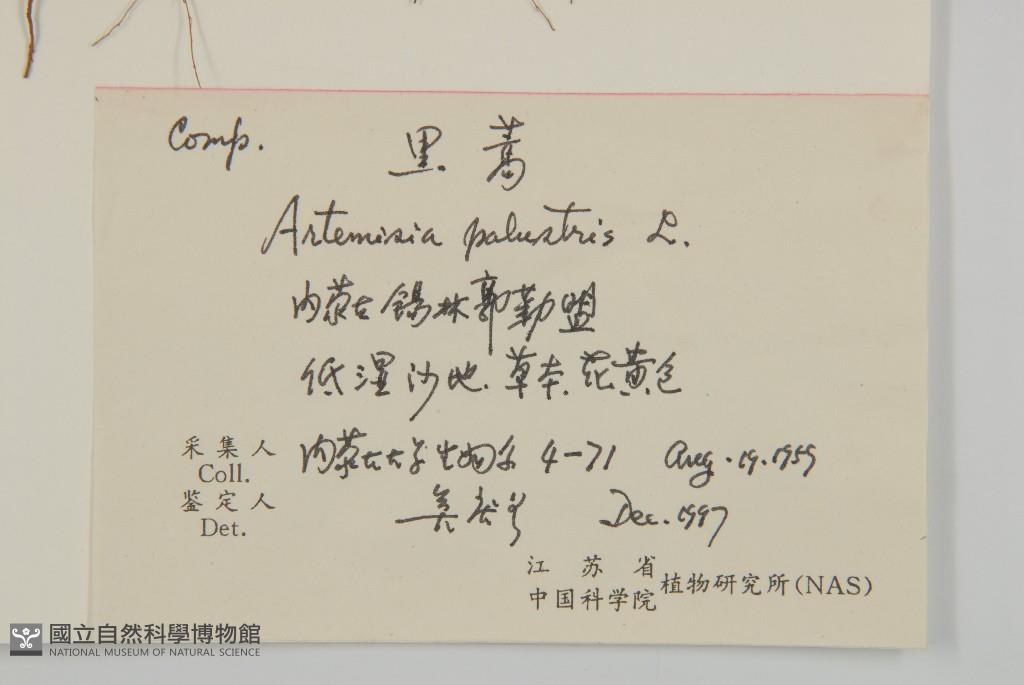 Comp. 黒 蒿
Artemisia palustris L.
内蒙古锡林郭勒盟
低湿沙地.草本.花黄色
采集人 内蒙古大学生物系 4-71 Aug.19.1959
Coll.
鉴定人 Dec.1997
Det.
江苏省
中国科学院 植物研究所(NAS)
國立自然科學博物館
NATIONAL MUSEUM OF NATURAL SCIENCE